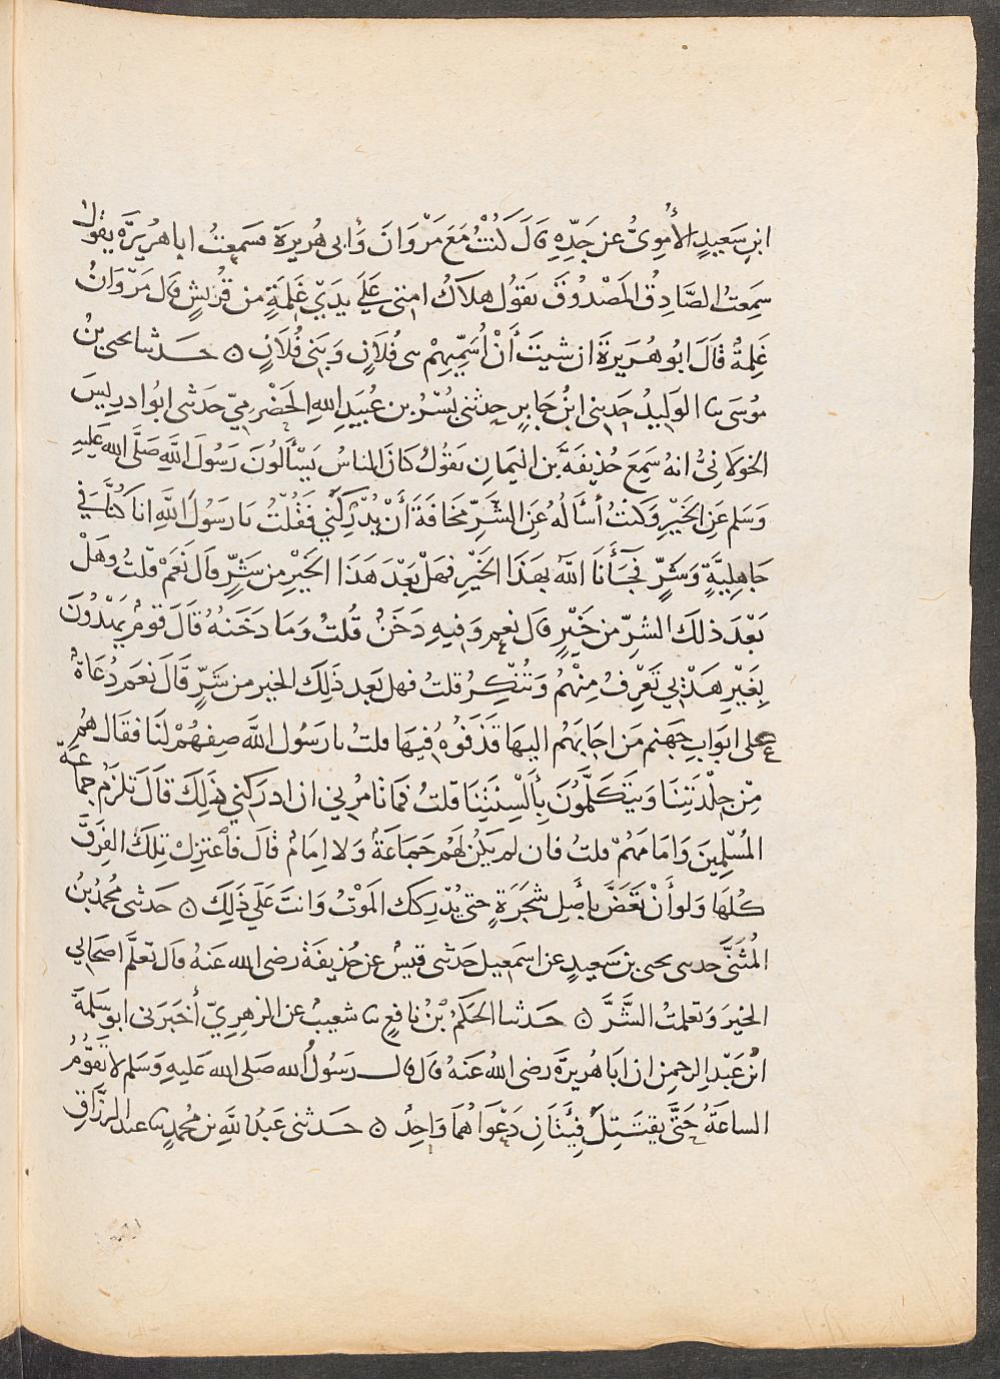 ابنِ سَعيدٍ الأُمويُّ عن جَدِّهِ قالَ كُنْتُ مَعَ مَرْوَانَ وَأبى هُريرَةَ فسَمِعتُ ابا هُرَيرَةَ يقولُ
سَمِعتُ الصَّادِقَ المَصْدُوقَ يقولُ هلَاكُ امتى عَلَى يَدَيْ غِلمَةٍ من قُرَيشٍ قال مَرْوَانُ
غِلمةٌ قالَ ابو هُرَيرَةَ ان شيتَ أنْ أُسَمِّيهمْ بنى فُلَانٍ وَبَنى فُلَانٍ ه حَدثنا يحيى بنُ
موُسَى نا الوَليدُ حدثنى ابنُ جَابرٍ حدثنى بُسْرُ بن عُبَيدِ اللهِ الحَضْرَمِيّ حَدثنى ابوُ ادرِيسَ
الخَولَانيُّ انهُ سَمِعَ حُذيفَةَ بن اليَمانِ يقولُ كانَ الناسُ يَسْألونَ رَسُولَ اللهِ صَلَّى الله عَليهِ
وَسَلم عَنِ الخَيْرِ وَكنتُ أسْألهُ عَنِ الشَّرِّ مخَافَةَ أَنْ يُدْرِكَنى فَقُلْتُ يا رَسُولَ اللهِ انا كُنَّا في
جَاهِليَّةٍ وَشرٍّ فجَاءَنَا اللهُ بهَذَا الخَيْرِ فهَلْ بَعْدَ هَذَا الخَيْرِ مِن شَرٍّ قال نَعَمْ قلتُ وَهَلْ
بَعْدَ ذلكَ الشرِّ من خَيْرٍ قال نعم وَفيهِ دَخَنٌ قُلتُ وَمَا دَخَنهُ قَالَ قومٌ يهْدُونَ
بِغَيْرِ هَدْيى تَعْرِفُ مِنْهُمْ وَتُنْكِرُ قلتُ فهل بَعد ذَلِكَ الخير من شَرٍّ قَالَ نعَم دُعَاةٌ
على ابوَابِ جَهنم مَن اجَابَهُم اليهَا قَذَفُوهُ فيهَا قلتُ يا رَسُول اللهَ صِفهُمْ لنَا فقَال هُم
مِنْ جِلْدَتِنَا وَيتَكَلَّمُونَ بِأَلْسِنَتِنَا قلتُ فمَا تَامُرُني ان ادرَكَنى ذلِكَ قَالَ تلزَمُ جماعةَ
المُسْلِمِينَ وَامَامَهُمْ قلتُ فان لم يَكنْ لهُم جَمَاعَةٌ وَلا اِمَامٌ قَالَ فاعْتزِلْ تِلكَ الفِرَقَ
كلهَا وَلو أنْ تَعَضَّ بأصْلِ شَجَرَةٍ حتى يُدْرِكَكَ المَوْتُ وَانتَ عَلَى ذَلِكَ ه حَدثنى مُحمدُ بنُ
المُثَنَّى حدثنى يحيى بن سَعيدٍ عن اسمَعيل حَدثنى قيسٌ عن حُذيفَةَ رضى الله عَنهُ قال تعَلَّم اصحَابى
الخيرَ وَتعلمتُ الشَّرَّ ه حَدثنا الحَكَمُ بْنُ نافعٍ نا شعَيبٌ عن الزهرِيّ أخبَرَنى ابو سَلمةَ
ابنُ عَبْدِ الرحمنِ ان ابَا هُرَيرَةَ رضى اللهُ عَنهُ قال قال رسُولُ الله صَلى الله عَليهِ وَسَلم لا تَقوُمُ
الساعَةُ حَتَّى يقتَتِلَ فِئَتَانِ دَعْوَاهُمَا وَاحِدٌ ه حَدثنى عَبدُ اللهِ بن مُحمدٍ نا عبد الرزَّاقِ